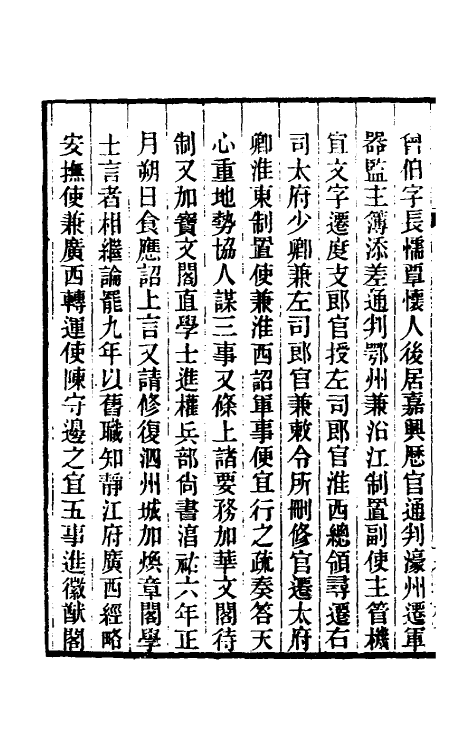 曾伯字長孺覃懷人後居嘉興歷官通判濠州遷軍
器監主簿添差通判鄂州兼沿江制置副使主管機
宜文字遷度支郎官授左司郎官淮西總領尋遷右
司太府少卿兼左司郎官兼敕令所刪修官遷太府
卿淮東制置使兼淮西詔軍事便宜行之疏奏答天
心重地勢協人謀三事又條上諸要務加華文閣待
制又加寶文閣直學士進權兵部尚書淳祐六年正
月朔日食應詔上言又請修復泗州城加煥章閣學
士言者相繼論罷九年以舊職知靜江府廣西經略
安撫使兼廣西轉運使陳守邊之宜五事進徽猷閣